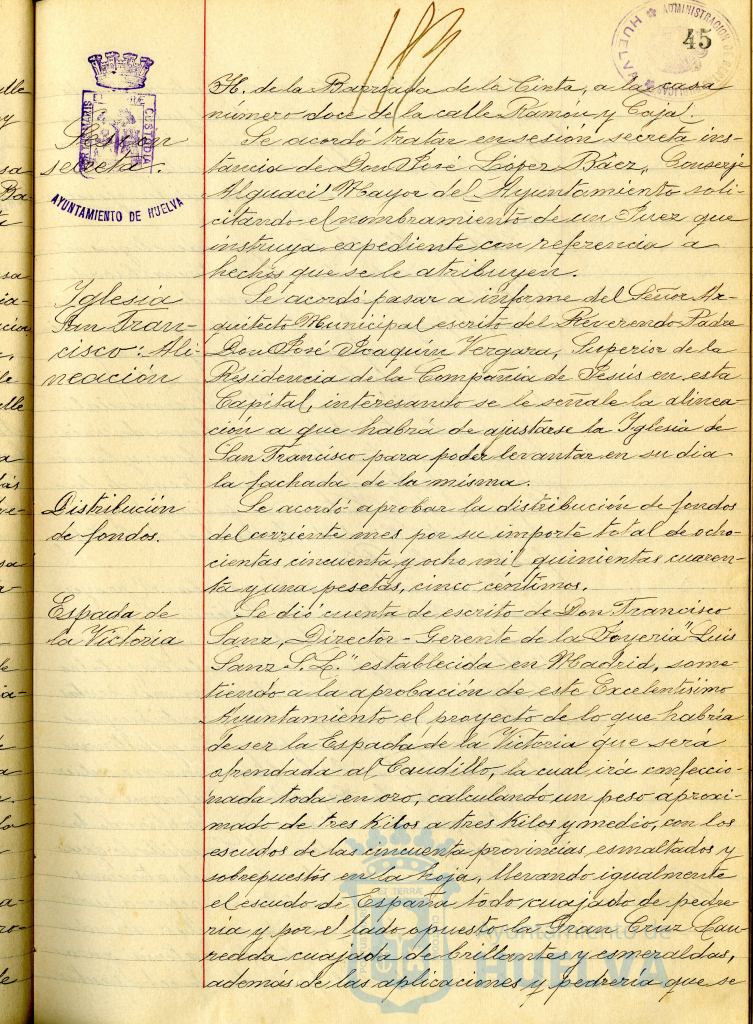 183
ADMINISTRACION DE
HUELVA
45
AYUNTAMIENTO DE HUELVA
H. de la Barriada de la Cinta, a la casa
número doce de la calle Ramón y Cajal.
Sesión
secreta.
Se acordó tratar en sesión secreta ins-
tancia de Don José López Báez, Conserje
Alguacil Mayor del Ayuntamiento soli-
citando el nombramiento de un Juez que
instruya expediente con referencia a
hechos que se le atribuyen.
Iglesia
San Fran-
cisco: Ali-
neación
Se acordó pasar a informe del Señor Ar-
quitecto Municipal escrito del Reverendo Padre
Don José Joaquín Vergara, Superior de la
Residencia de la Compañía de Jesús en esta
Capital, interesando se le señale la alinea-
ción a que habrá de ajustarse la Iglesia de
San Francisco para poder levantar en su dia
la fachada de la misma.
Distribución
de fondos.
Se acordó aprobar la distribución de fondos
del corriente mes por su importe total de ocho-
cientas cincuenta y ocho mil quinientas cuaren-
ta y una pesetas, cinco céntimos.
Espada de
la Victoria
Se dió cuenta de escrito de Don Francisco
Sanz, Director-Gerente de la Joyeria "Luis
Sanz S.L." establecida en Madrid, some-
tiendo a la aprobación de este Excelentísimo
Ayuntamiento el proyecto de lo que habría
de ser la Espada de la Victoria que será
ofrendada al Caudillo, la cual irá confeccio-
nada toda en oro, calculando un peso aproxi-
mado de tres kilos a tres kilos y medio, con los
escudos de las cincuenta provincias esmaltados y
sobrepuestos en la hoja, llevando igualmente
el escudo de España todo cuajado de pedre-
ria y por el lado opuesto la Gran Cruz Lau-
reada cuajada de brillantes y esmeraldas,
además de las aplicaciones y pedrería que se
Ayuntamiento de
HUELVA